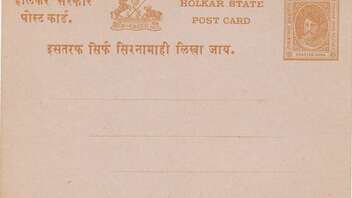 होलकर सरकार
पोस्ट कार्ड.
HOLKAR STATE
POST CARD
इसतरफ सिर्फ सिरनामाही लिखा जाय.
QUARTER ANNA